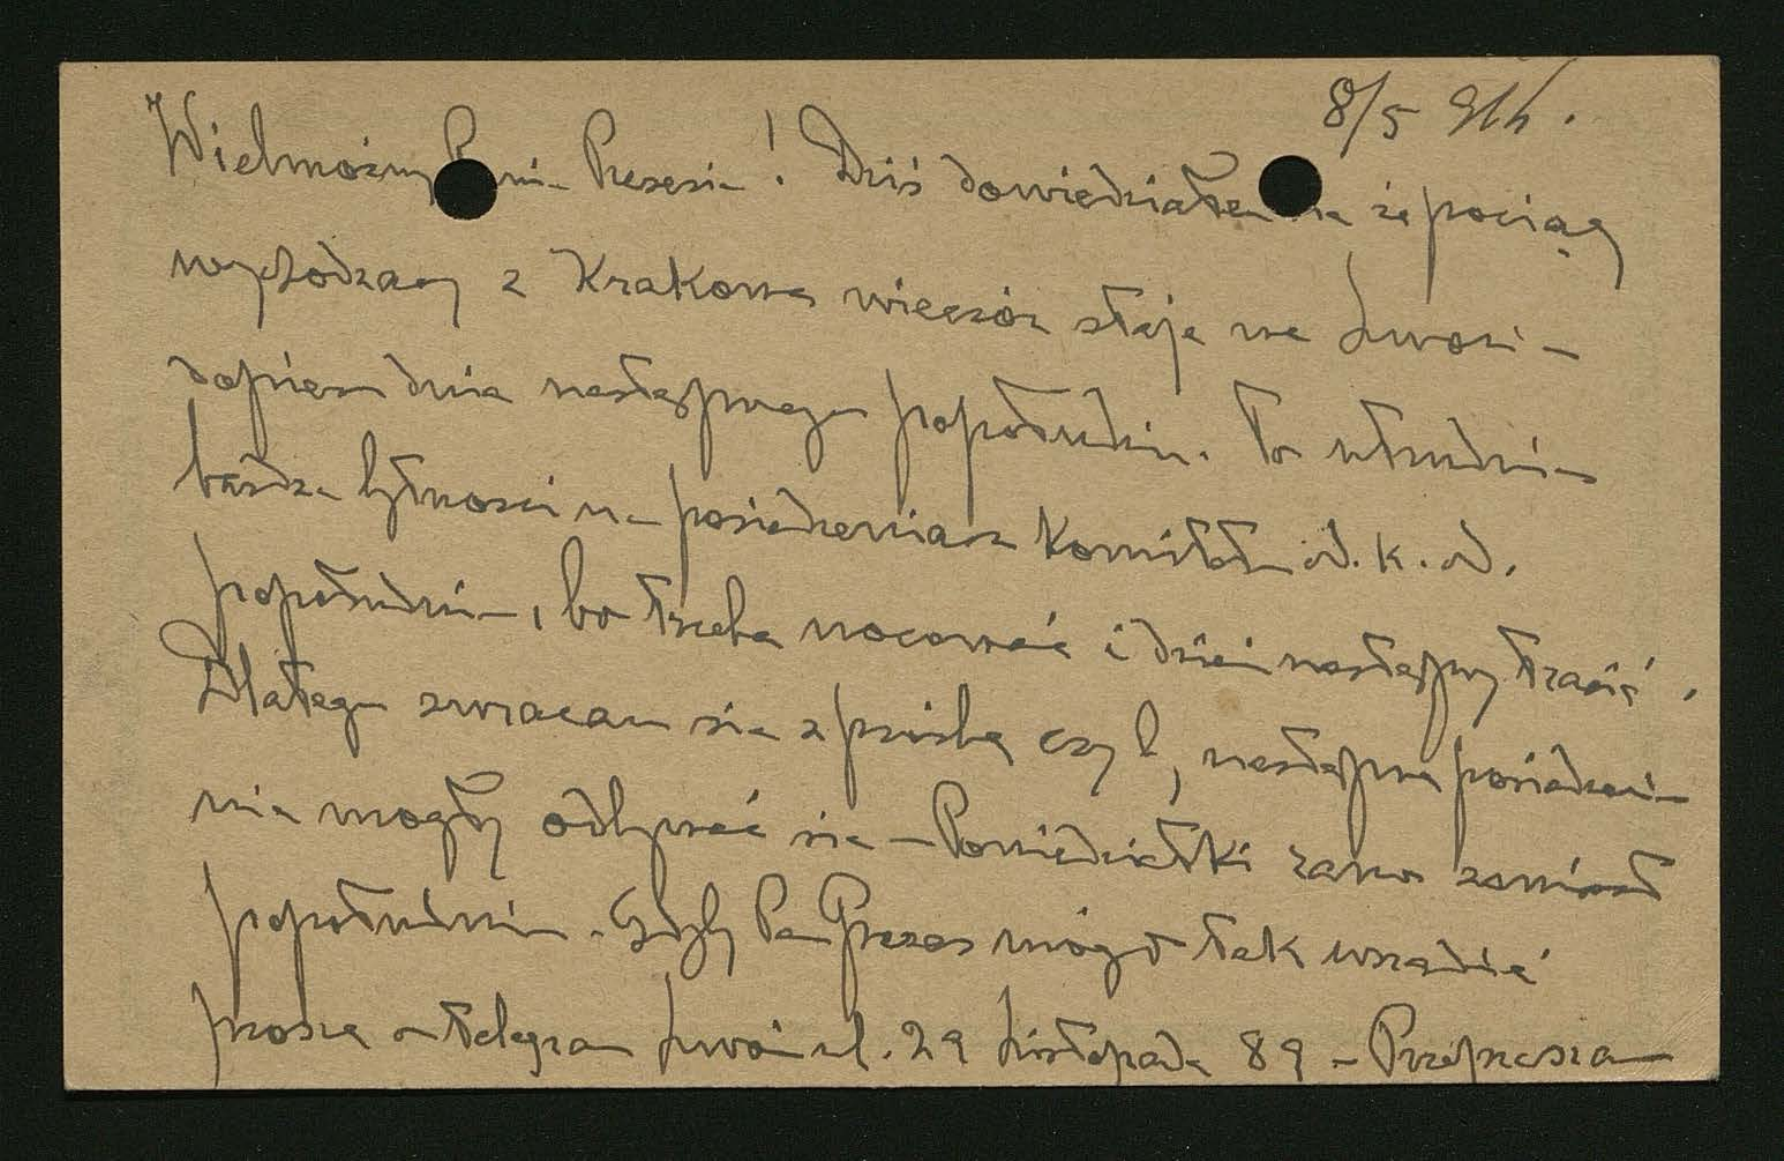 8/5
Wielmożny Panie Prezesie! Dziś dowiedziałem się że pociąg
wychodzący z Krakowa wieczór staje we Lwowie
dopiero dnia następnego popołudniu. To utrudnia
bardzo bytności na posiedzeniach Komitetu
popołudniu, bo trzeba nocować i dzień następny tracić.
Dlatego zwracam się z prośbą czy b, następne posiedzenia
nie mogły odbywać się w Poniedziałki rano zamiast
popołudniu. Gdyby Pan Prezes mógł tak urządzić
proszę o telegram Lwów ul. 29 Listopada 89 - Przepraszam